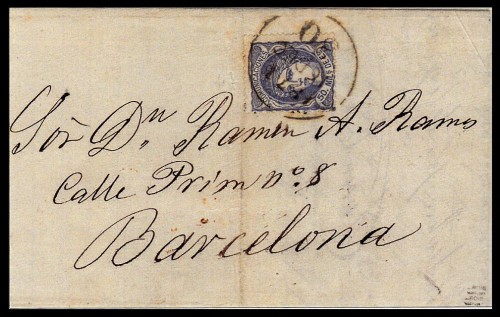 COMUNICACIONES
Sor Dn Ramon A. Ramos
Calle Prim no. 8
Barcelona